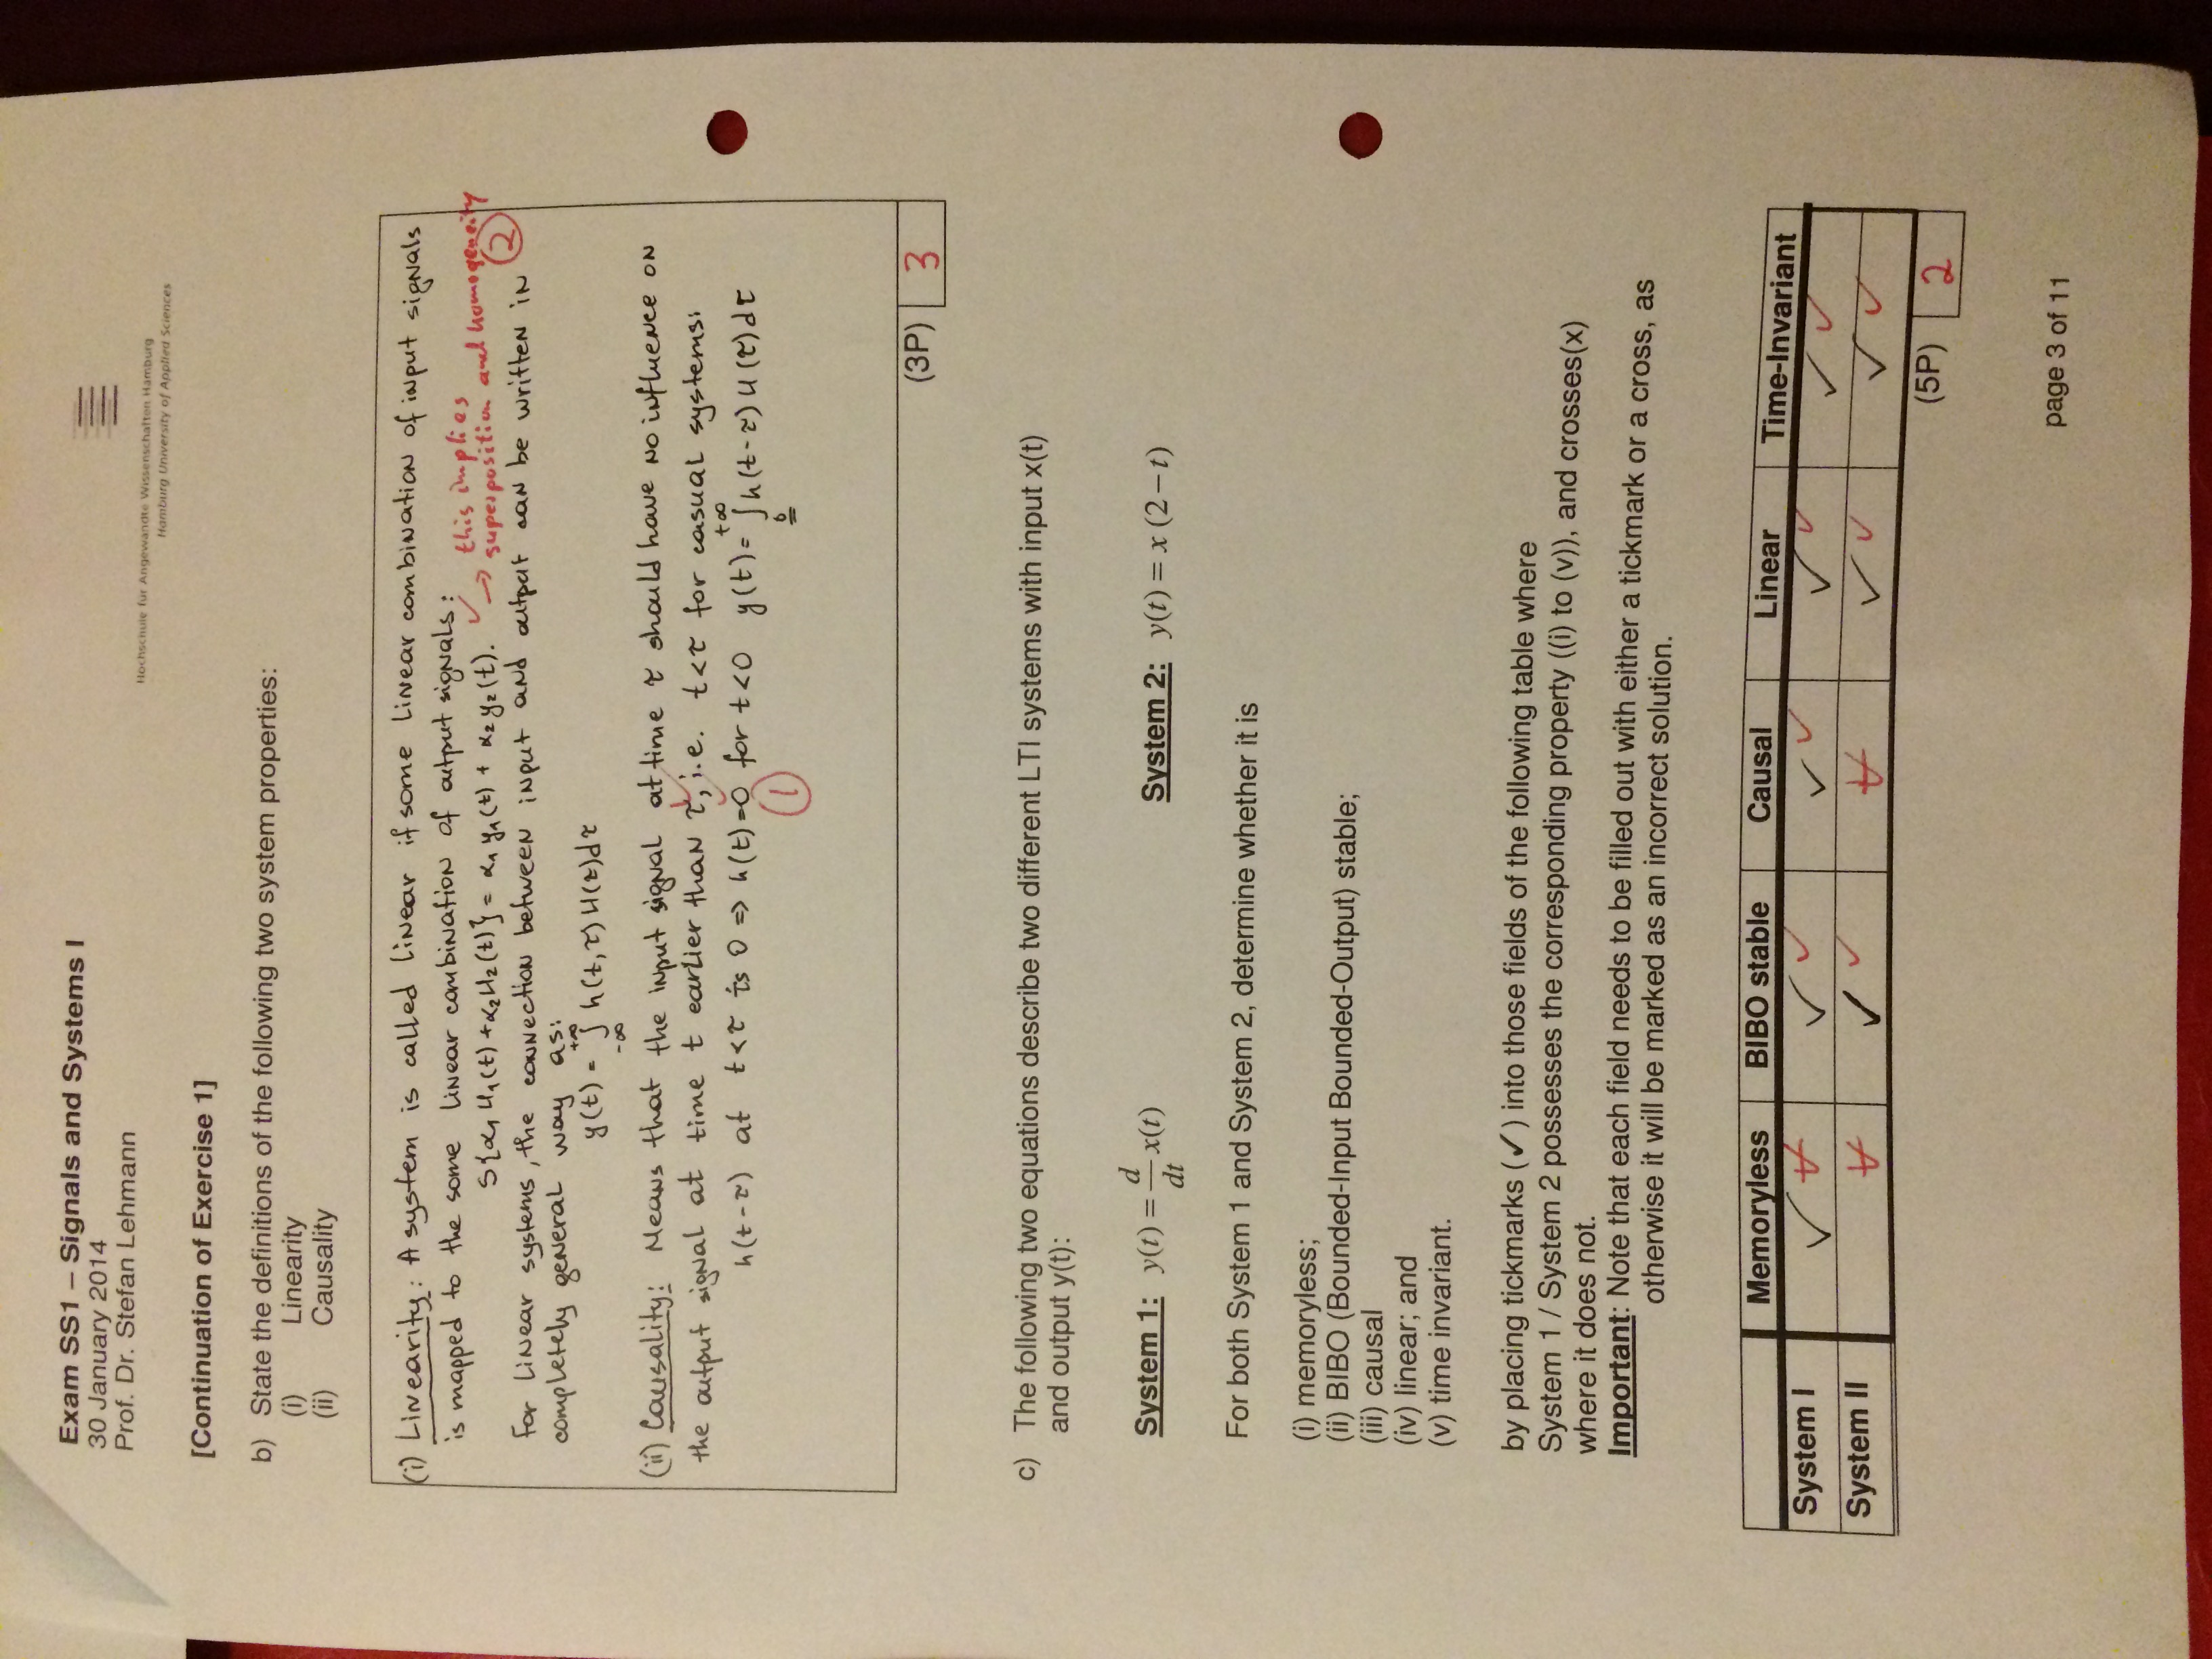 Exam SS1 – Signals and Systems I
30 January 2014
Prof. Dr. Stefan Lehmann
Hochschule für Angewandte Wissenschaften Hamburg
Hamburg University of Applied Sciences
[Continuation of Exercise 1]
b) State the definitions of the following two system properties:
(i) Linearity
(ii) Causality
(i) Linearity: A system is called linear if some linear combination of input signals
is mapped to the some linear combination of output signals:
S{α₁ u₁(t) + α₂ u₂(t)} = α₁ y₁(t) + α₂ y₂(t). ✓ → this implies
superposition and homogeneity
②
For linear systems, the connection between input and output can be written in
completely general way as:
y(t) = ∫_{-∞}^{+∞} h(t,τ) u(τ)dτ
(ii) Causality: Means that the input signal at time τ should have no influence on
the output signal at time t earlier than τ, i.e. t<τ for casual systems:
h(t-τ) at t<τ is 0 => h(t)=0 for t<0 y(t)= ∫_{0}^{+∞} h(t-τ) u(τ)dτ
①
(3P) 3
c) The following two equations describe two different LTI systems with input x(t)
and output y(t):
System 1: y(t) = d/dt x(t) System 2: y(t) = x (2–t)
For both System 1 and System 2, determine whether it is
(i) memoryless;
(ii) BIBO (Bounded-Input Bounded-Output) stable;
(iii) causal
(iv) linear; and
(v) time invariant.
by placing tickmarks (✓) into those fields of the following table where
System 1 / System 2 possesses the corresponding property ((i) to (v)), and crosses(x)
where it does not.
Important: Note that each field needs to be filled out with either a tickmark or a cross, as
otherwise it will be marked as an incorrect solution.
Memoryless BIBO stable Causal Linear Time-Invariant
System I ✓ ✓ ✓ ✓ ✓ ✓ ✓ ✓ ✓
System II ✓ ✓ ✓ ✓ ✓ ✓
(5P) 2
page 3 of 11